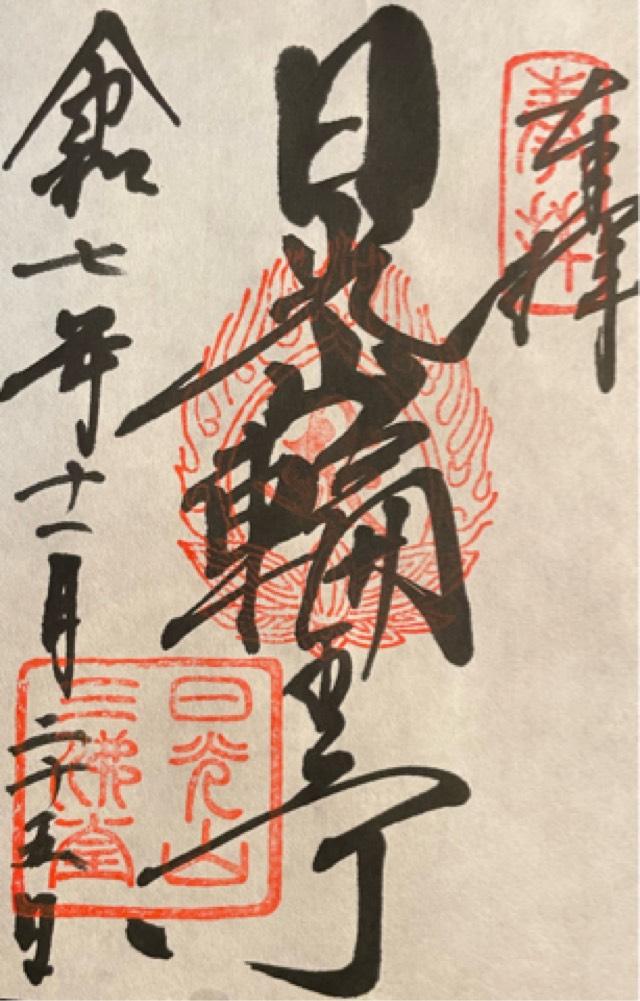 奉拝
日光山輪王寺
令和七年十一月二十五日
日光山
三佛堂